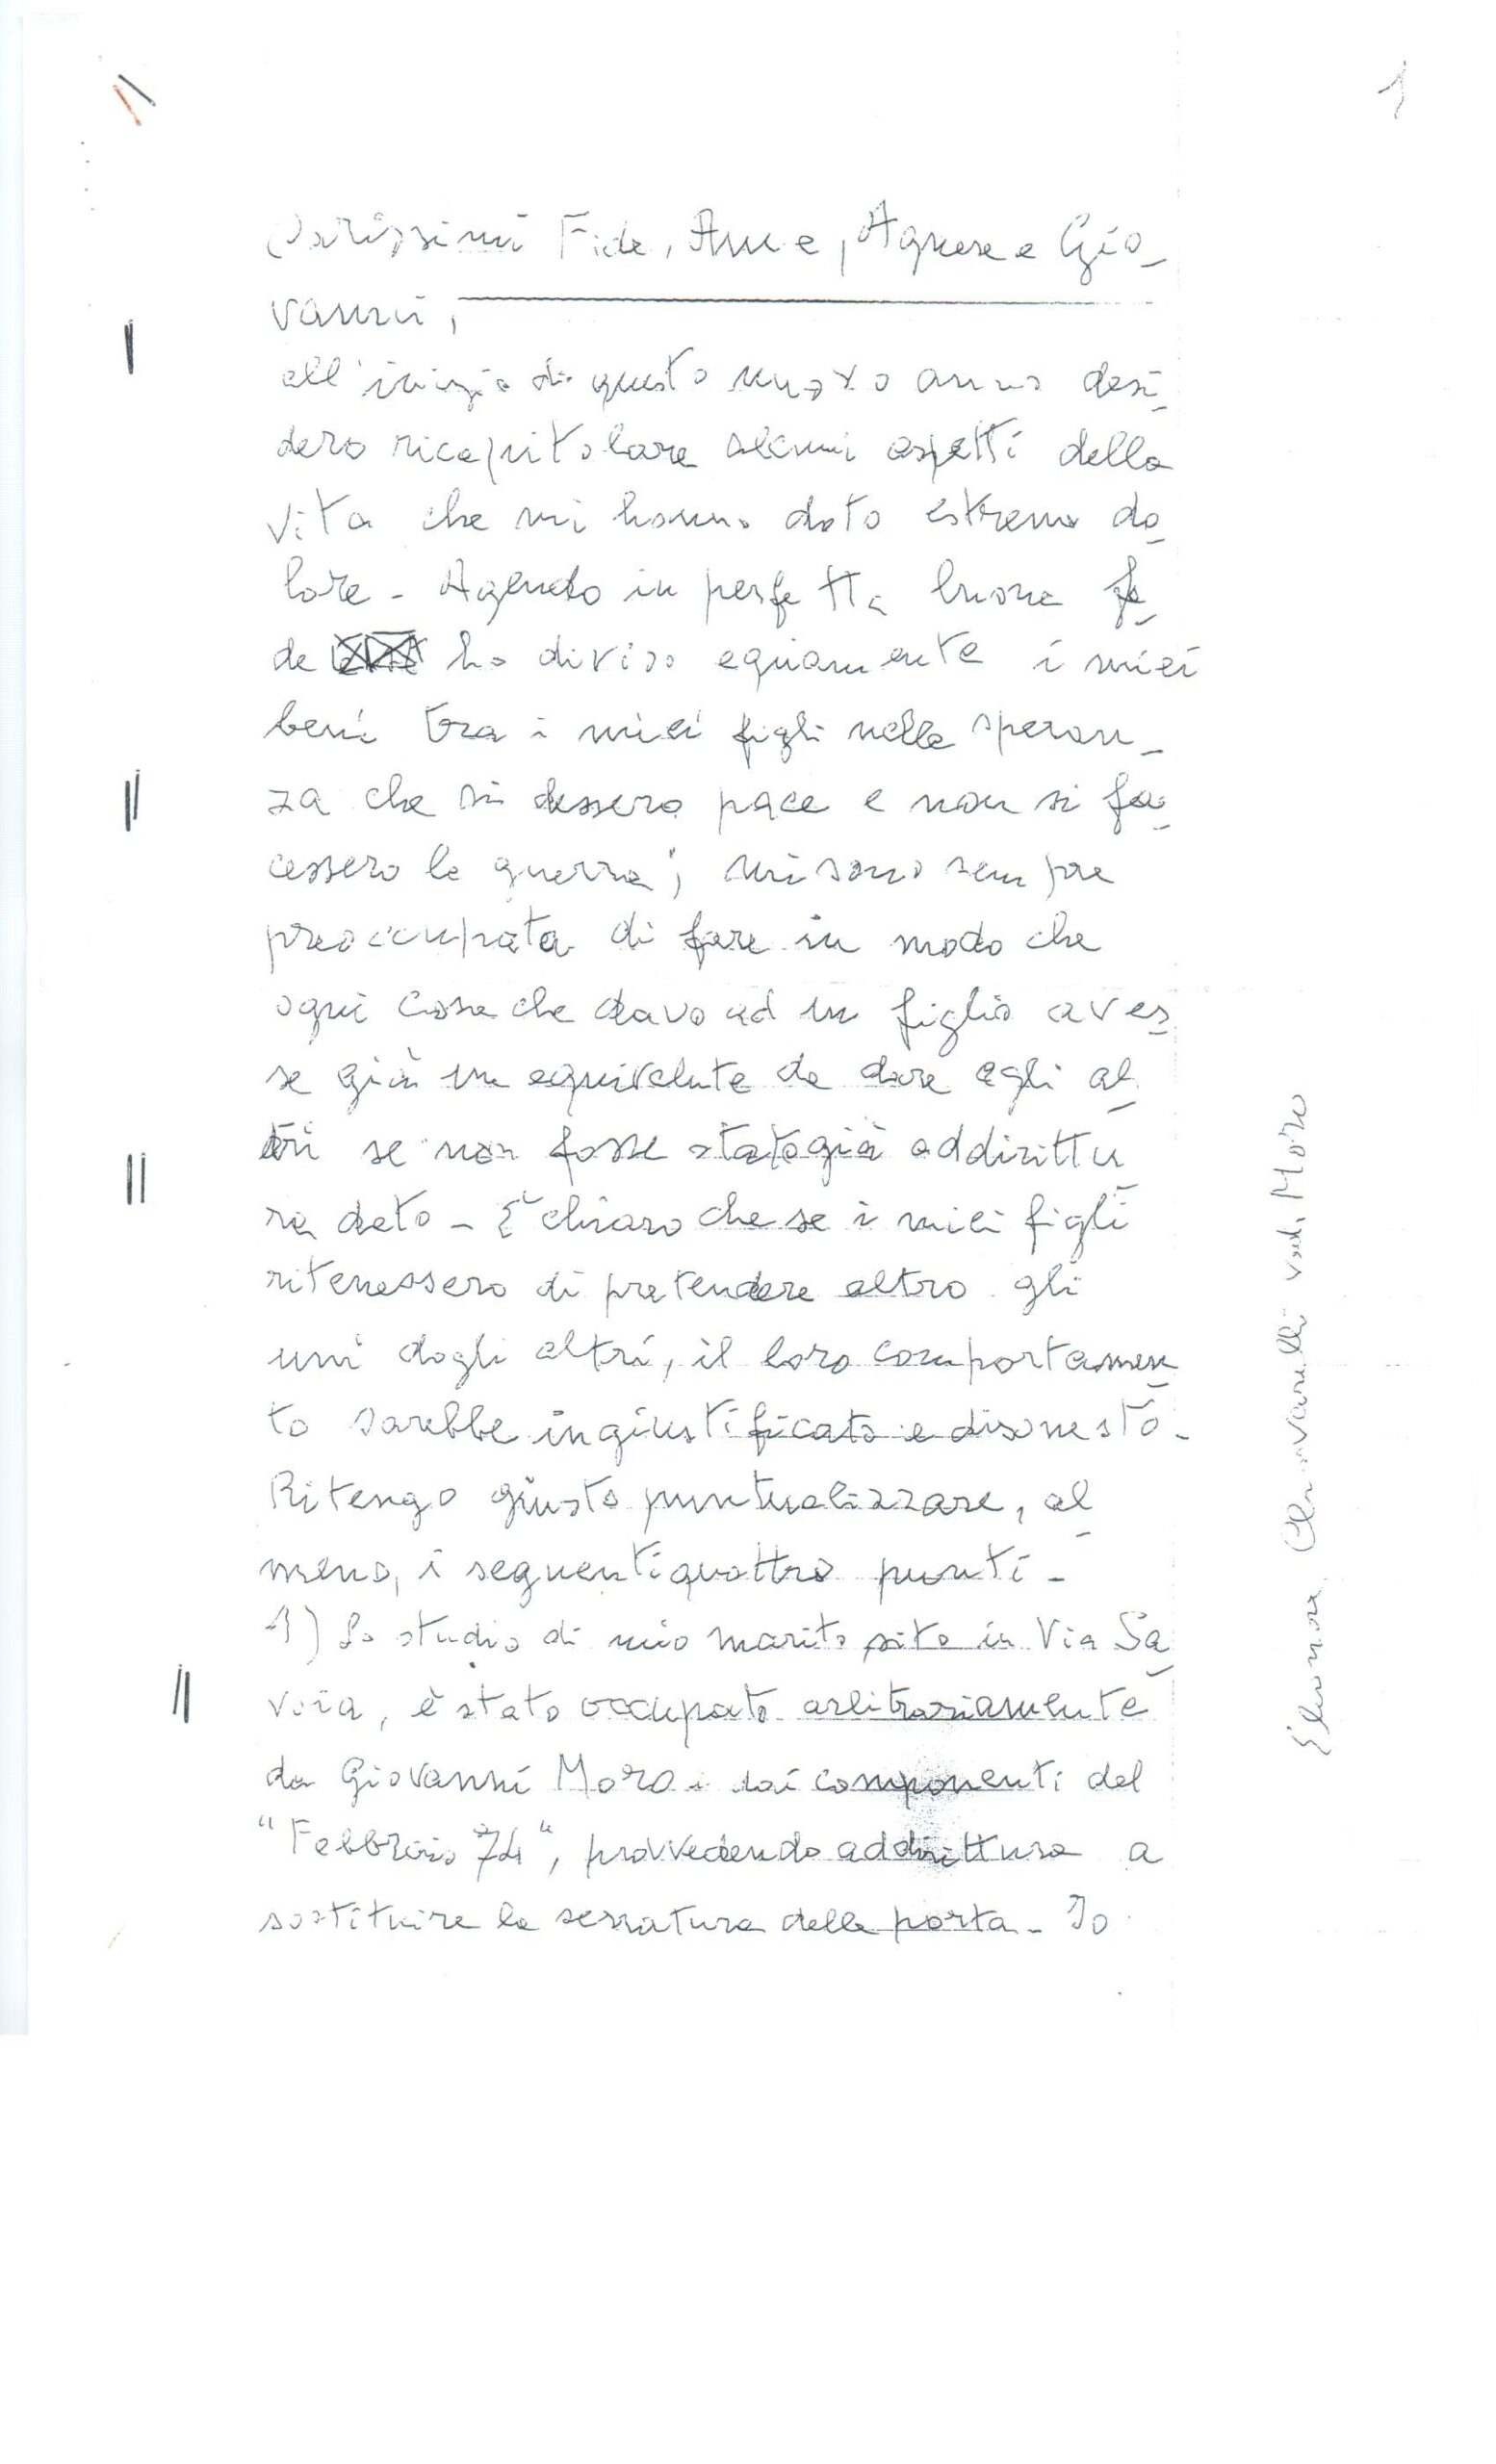 1
Carissimi Fida, Anna, Agnese e Gio_
vanni,
all'inizio di questo nuovo anno desi_
dero ricapitolare alcuni aspetti della
vita che mi hanno dato estremo do_
lore - Agendo in perfetta buona fe_
de ho diviso equamente i miei
beni tra i miei figli nella speran_
za che si dessero pace e non si fa_
cessero la guerra; mi sono sempre
preoccupata di fare in modo che
ogni cosa che davo ad un figlio aves_
se già un equivalente da dare agli al_
tri se non fosse stato già addirittu_
ra dato - È chiaro che se i miei figli
ritenessero di pretendere altro gli
uni dagli altri, il loro comportamen_
to sarebbe ingiustificato e disonesto -
Ritengo giusto puntualizzare, al_
meno, i seguenti quattro punti -
1) Lo studio di mio marito sito in Via Sa_
voia, è stato occupato arbitrariamente
da Giovanni Moro e dai componenti del
"Febbraio 74", provvedendo addirittura a
sostituire la serratura della porta - Io
Eleonora Chiavarelli ved. Moro